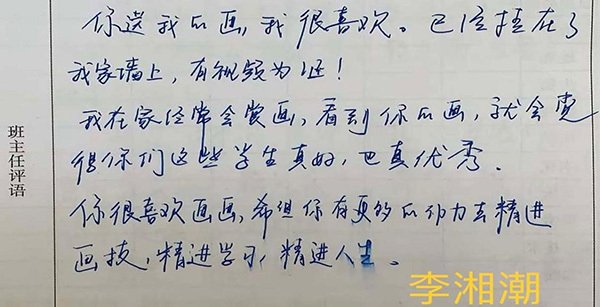 你送我的画，我很喜欢。已经挂在了
我家墙上，有视频为证！
我在家经常会赏画，看到你的画，就会觉
得你们这些学生真好，也真优秀。
你很喜欢画画，希望你有更多的动力去精进
画技，精进学习，精进人生。
班主任评语
李湘潮